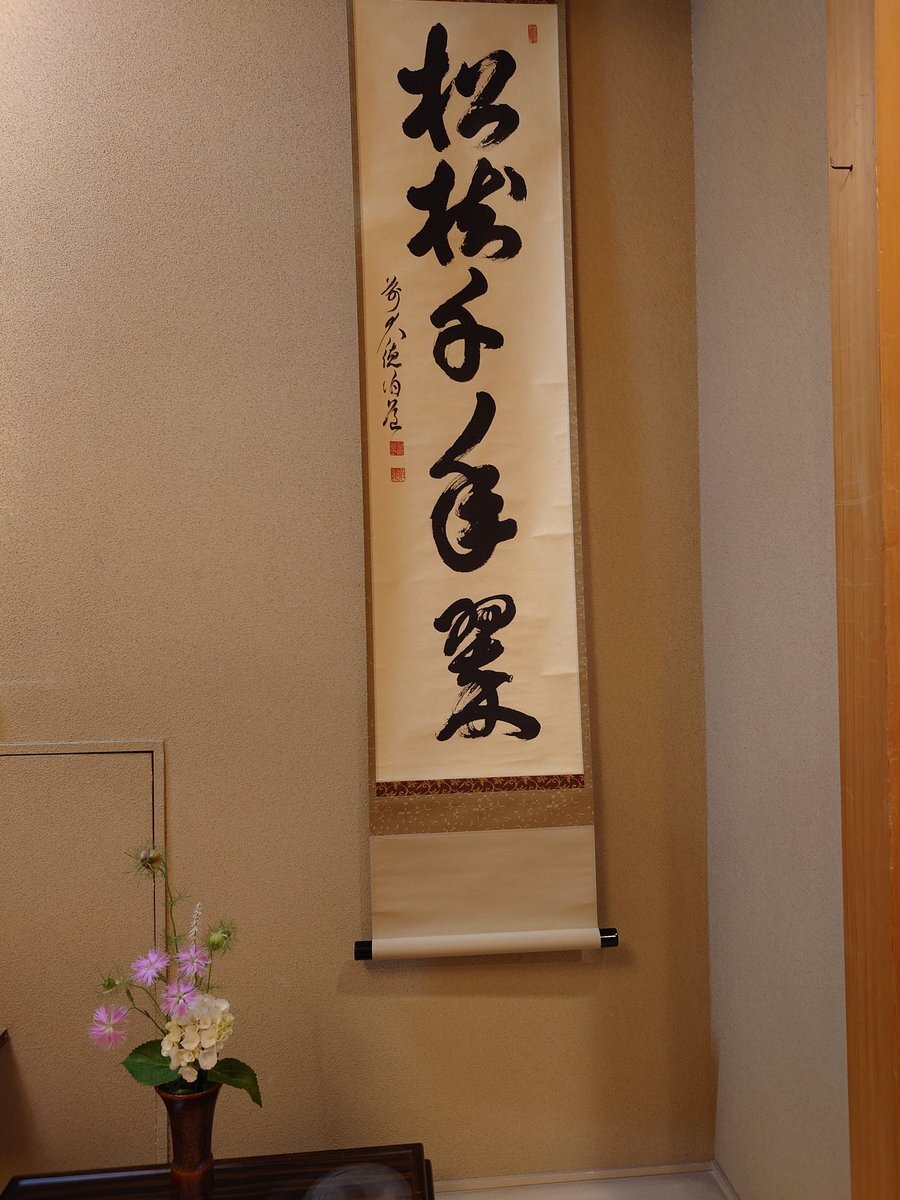 松樹千年翠
前大徳伯菴